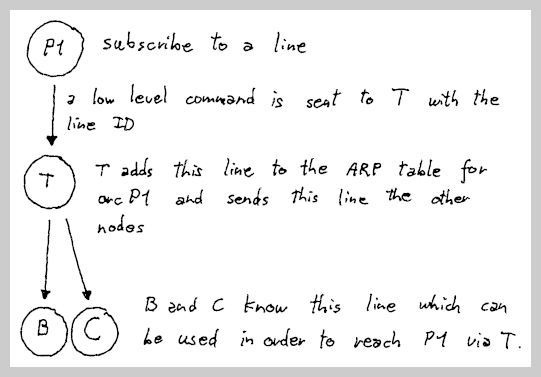 P1 subscribe to a line
a low level command is sent to T with the
line ID
T T adds this line to the ARP table for
arc P1 and sends this line the other
nodes
B and C know this line which can
B C be used in order to reach P1 via T.